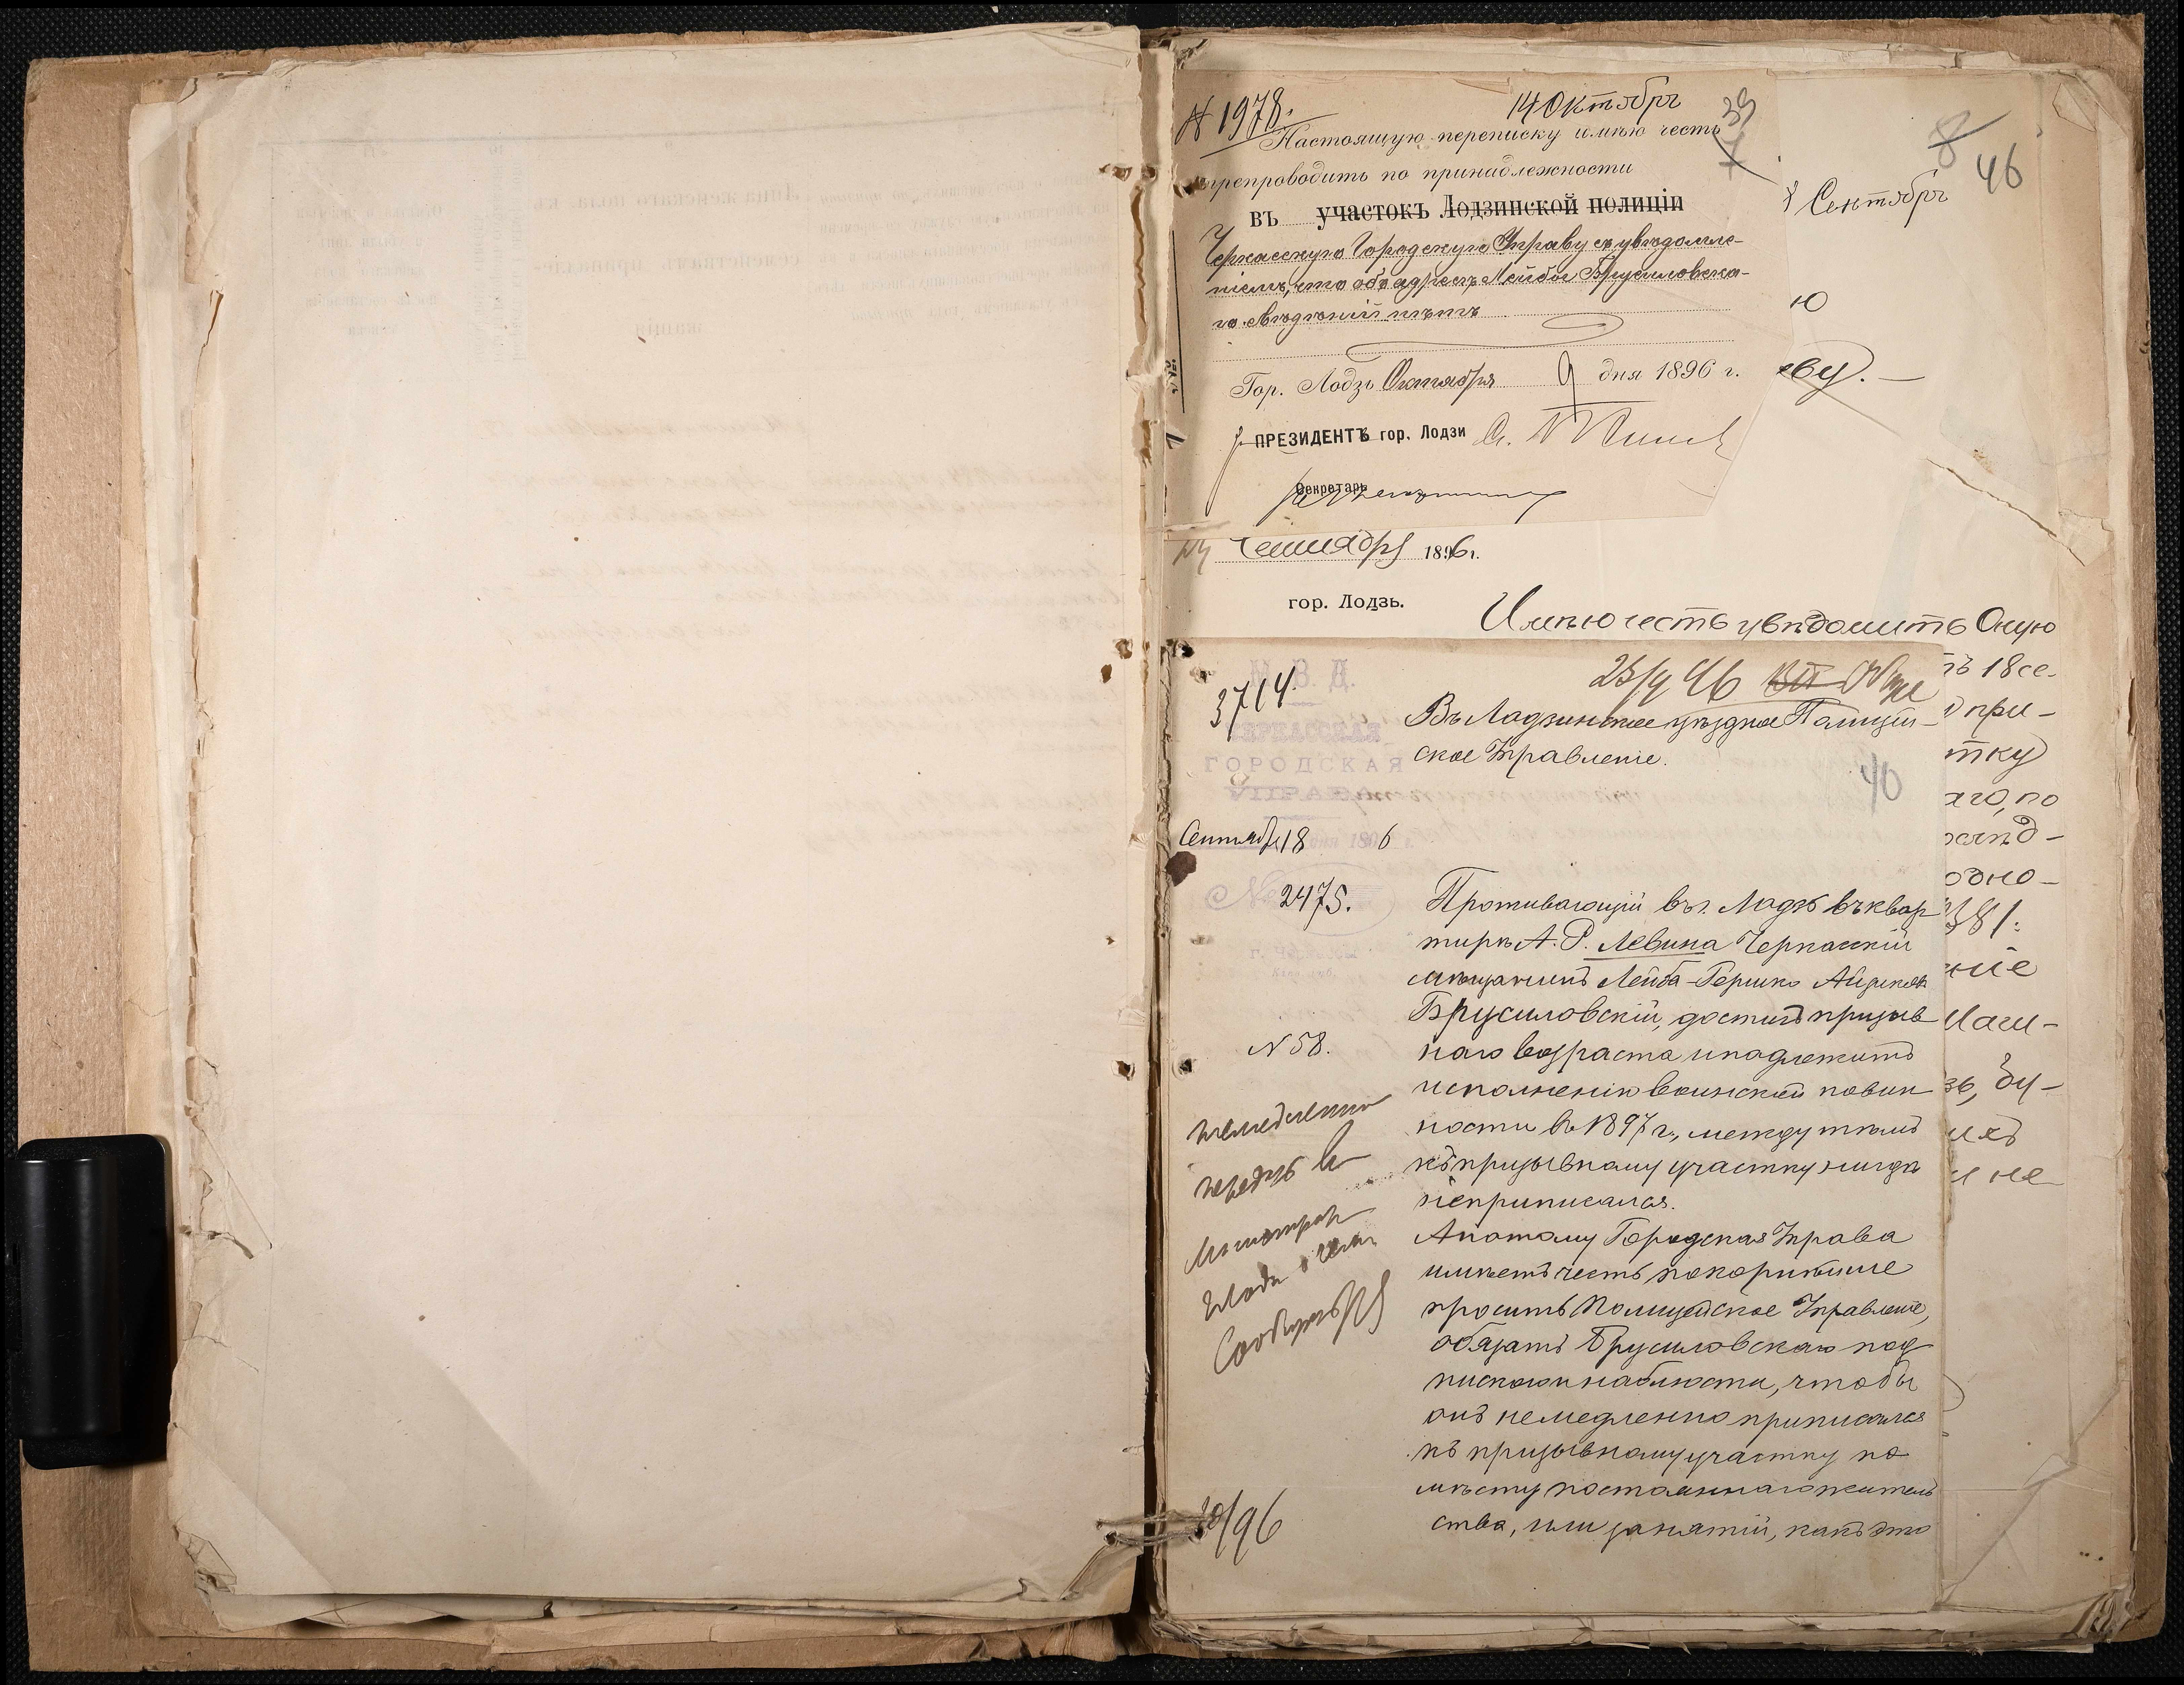 № 1978.
14 Октябрь
39
7
Настоящую переписку имѣю честь
препроводить по принадлежности
въ участокъ Лодзинской полиціи
Черкасскую Городскую Управу съ увѣдомле-
ніемъ, что объ адресѣ Лейбы Брусиловска-
го свѣдѣній нѣтъ
Гор. Лодзь Октября 9 дня 1896 г.
ПРЕЗИДЕНТЪ гор. Лодзи
Секретарь
8
46
Сентябрь
ю
еву. —
Сентября 1896 г.
гор. Лодзь.
Имѣю честь увѣдомить Оную
ть 18 се-
при-
тку
аго, по
одно-
ніе
Маш-
зь, Бу-
и не
3714.
М. В. Д.
ЧЕРКАССКАЯ
ГОРОДСКАЯ
УПРАВА
Сентября 18 дня 1896 г.
№ 2475.
г. Черкассы
№ 58.
40
Въ Лодзинское уѣздное Полицей-
ское Управленіе.
Проживающій въ г. Лодзѣ въ квар
тирѣ А. Р. Левина Черкасскій
мѣщанинъ Лейба-Гершко Айзиковъ
Брусиловскій, достигъ призыв
наго возраста и подлежитъ
исполненію воинской повин
ности въ 1897 г., между тѣмъ
къ призывному участку нигдѣ
неприписался.
А потому Городская Управа
имѣетъ честь покорнѣйше
просить Полицейское Управленіе,
обязать Брусиловскаго под
пискою и наблюсти, чтобы
онъ немедленно приписался
къ призывному участку по
мѣсту постояннаго житель
ства, или занятій, какъ это
96